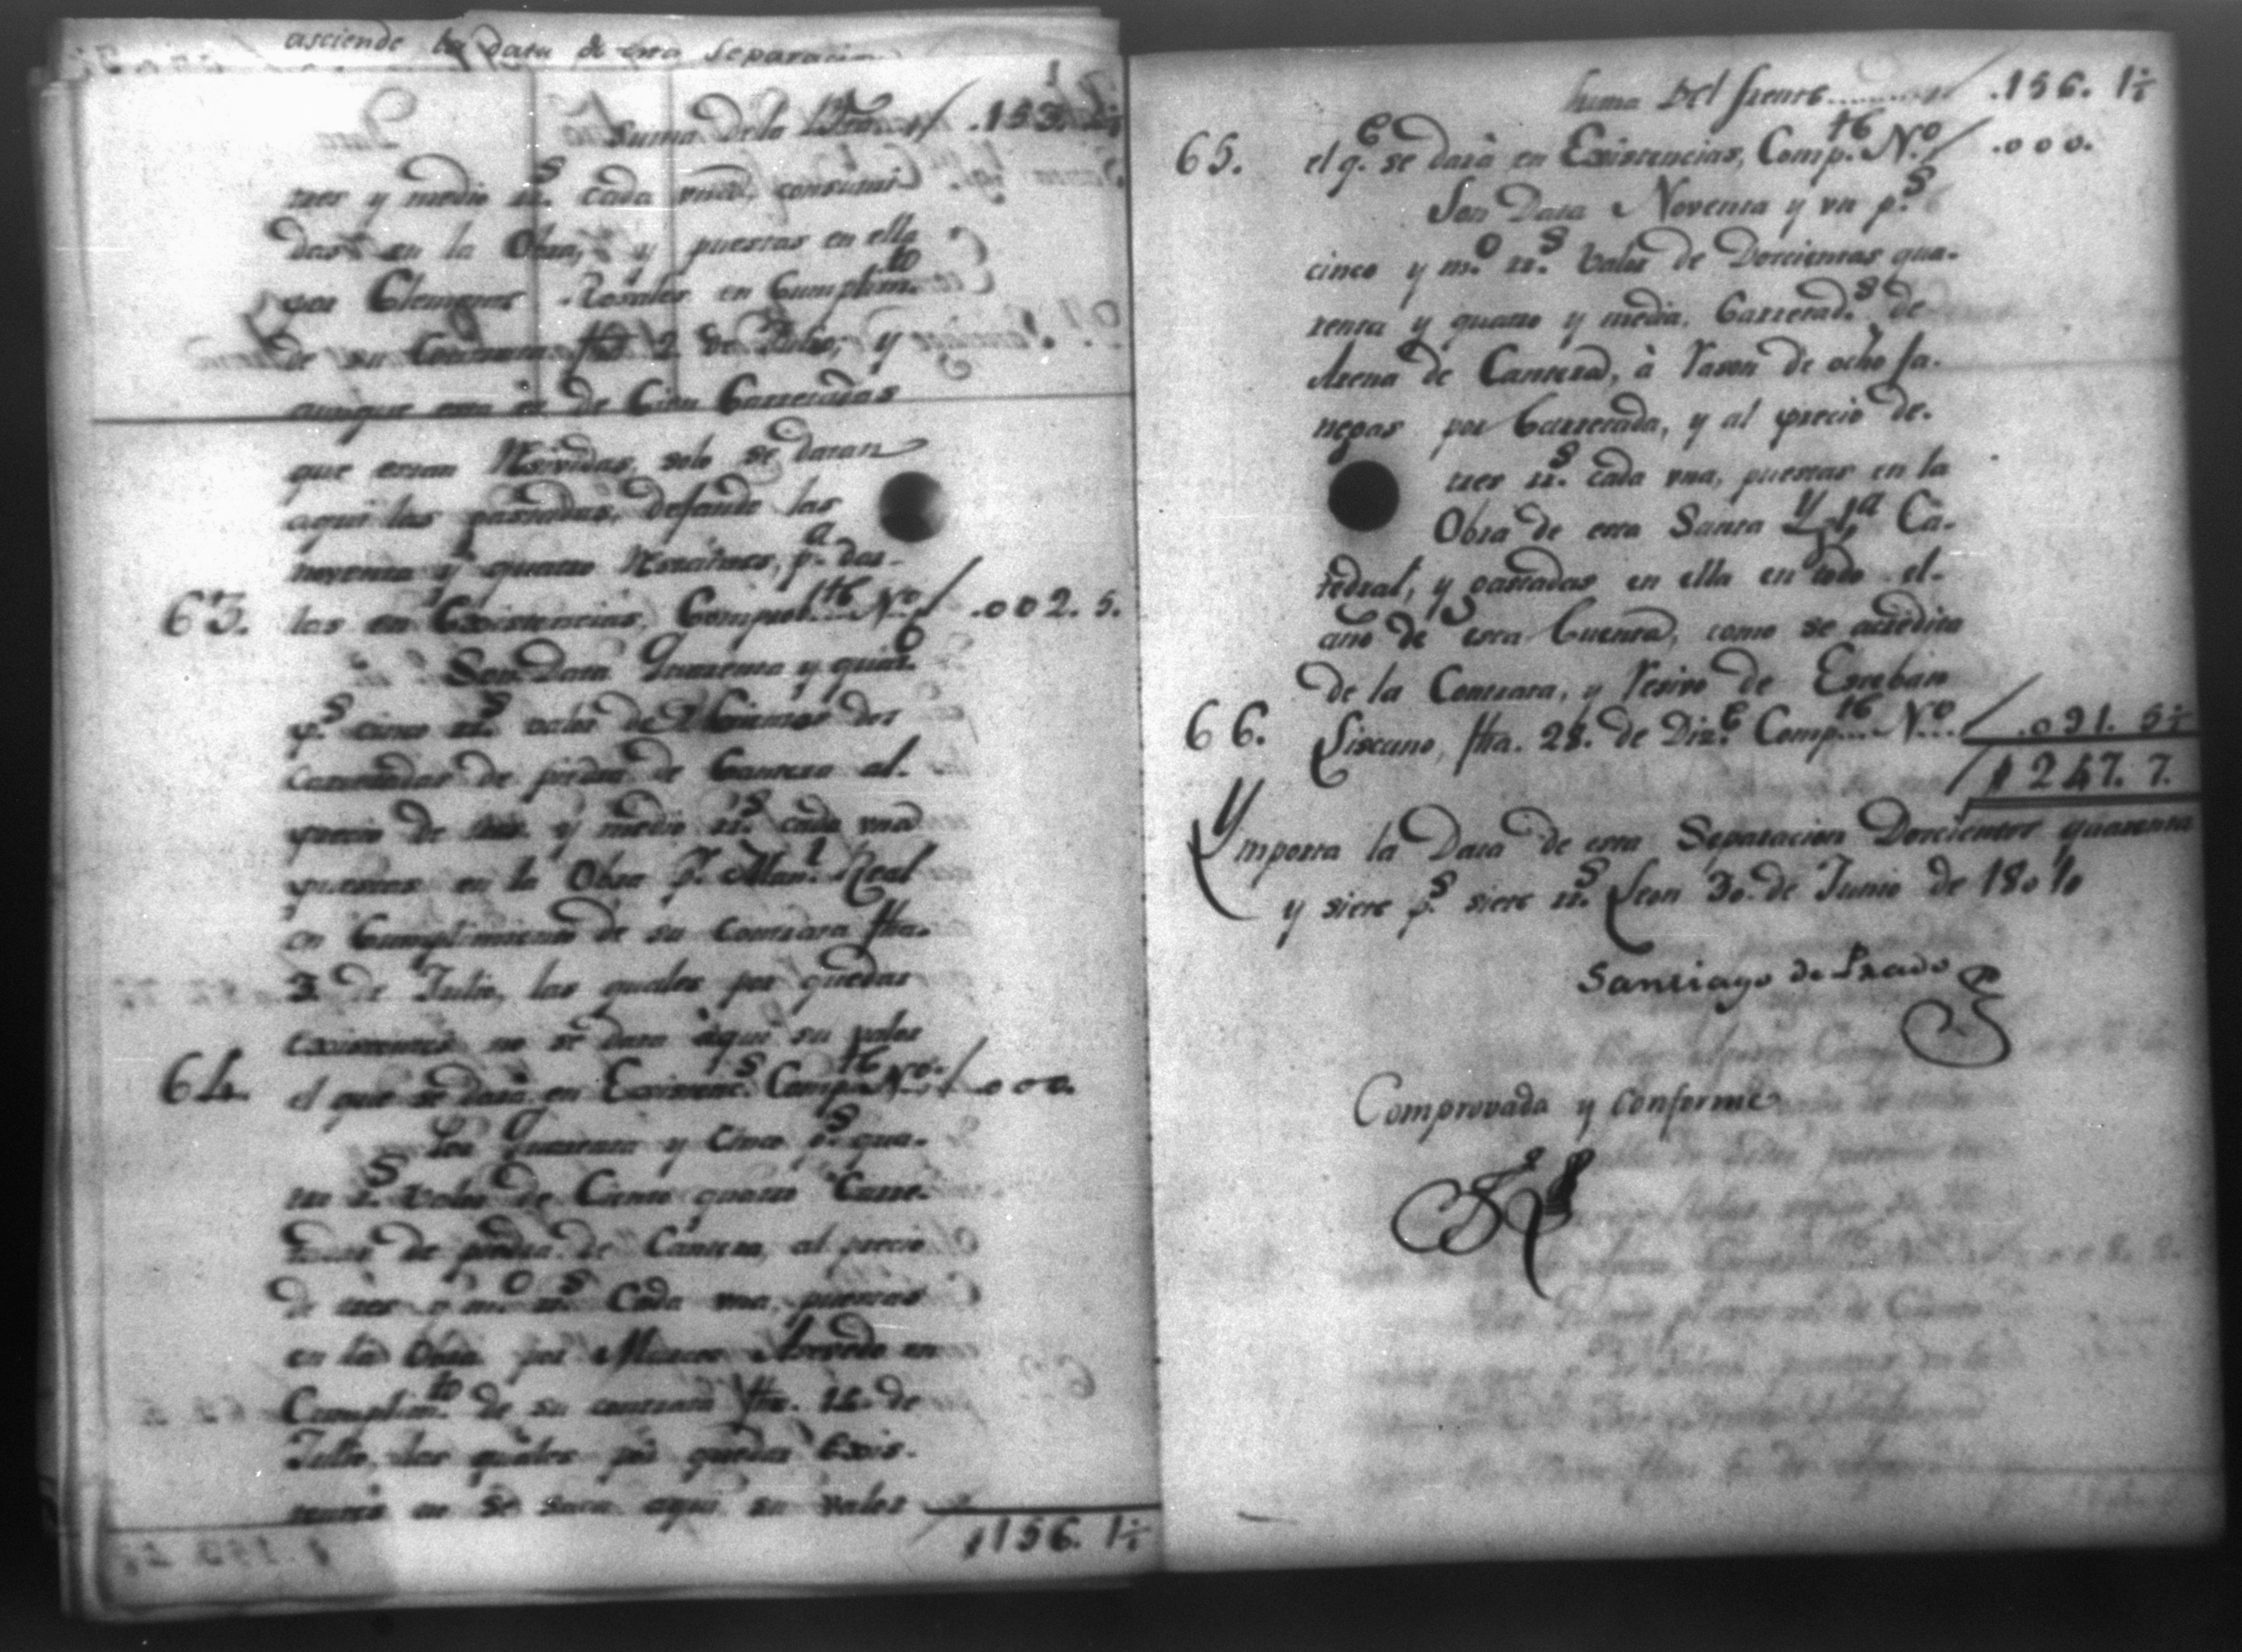 asciende la data de esta Separacion
Suma de la Bta / .153. 4½
tres y medio rr.s cada una, consumi
das en la Obra, y puestas en ella
por Clemente Rosales en Cumplim.to
de su Contrata fha 2 de Julio, y
aunque esta és de Cien Carretadas
que estan Resividas, solo se datan
aqui las gastadas, dejando las
noventa y quatro Restantes, p.a dar-
63. las en Existencias, Comprob.te N.o / .002. 5.
Son Data Quarenta y
p.s cinco rr.s valor de dos
carretadas de piedra de Cantera al
precio de tres y medio rr.s cada una
puestas en la Obra p.r Man.l Real
en Cumplimiento de su contrata fha.
3 de Julio, las quales por quedar
Existentes no se data aqui su valor
64. el que se dará en Existenc.s Comp.te N.o / .000.
Son Quarenta y Cinco p.s qua-
tro r.s valor de Ciento quatro Carre-
tadas de piedra de Cantera, al precio
de tres y m.o rr.s Cada una, puestas
en la Obra por Marcos Acevedo en
Cumplim.to de su contrata fha. 14 de
Julio, las quales por quedar Exis-
tentes no se saca aqui su valor
$156. 1½
Suma del frente........ / .156. 1½
65. el q.e se dará en Existencias, Comp.te N.o / .000.
Son Data Noventa y un p.s
cinco y m.o rr.s valor de Dorcientas qua-
renta y quatro y media, Carretad.s de
Arena de Cantera, à rason de ocho fa-
negas por Carretada, y al precio de
tres rr.s cada una, puestas en la
Obra de esta Santa Ygl.a Ca-
tedral, y gastadas en ella en todo el
año de esta Cuenta, como se acredita
de la Contrata, y resivo de Esteban
66. Liscano, fha. 28. de Diz.e Comp.te N.o.. / .091. 5½
/ $247. 7.
Ymporta la Data de esta Separacion Dorcientos quarenta
y siete p.s siete rr.s Leon 30. de Junio de 1801.
Santiago de Prado
Comprovada y conforme